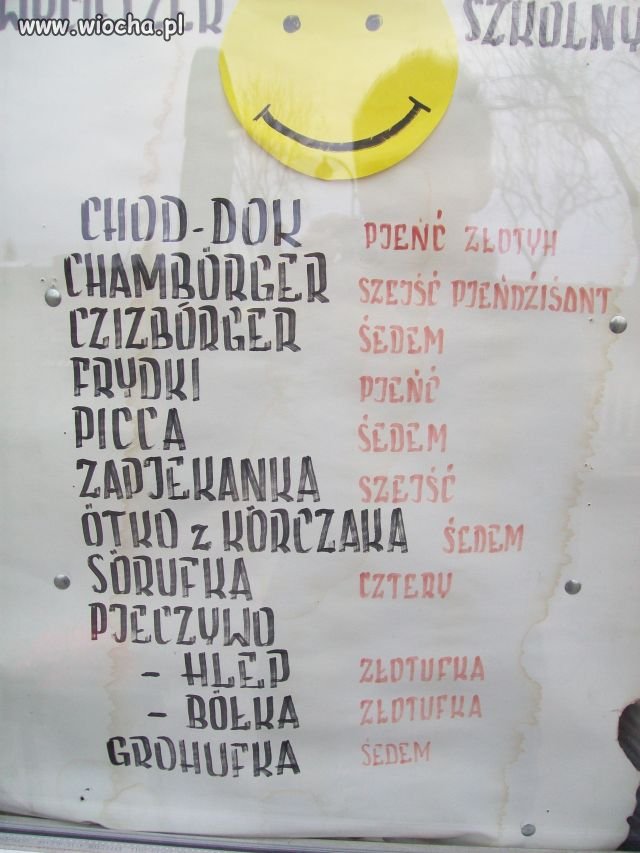 www.wiocha.pl
SZKOLNY
CHOD-DOK PJEŃĆ ZŁOTYH
CHAMBÓRGER SZEJŚĆ PJEŃDŹIŚONT
CZIZBÓRGER ŚEDEM
FRYDKI PJEŃĆ
PICCA ŚEDEM
ZAPJEKANKA SZEJŚĆ
ÓTKO z KÓRCZAKA ŚEDEM
SÓRUFKA CZTERY
PJECZYWO
- HLEP ZŁOTUFKA
- BÓŁKA ZŁOTUFKA
GROHUFKA ŚEDEM